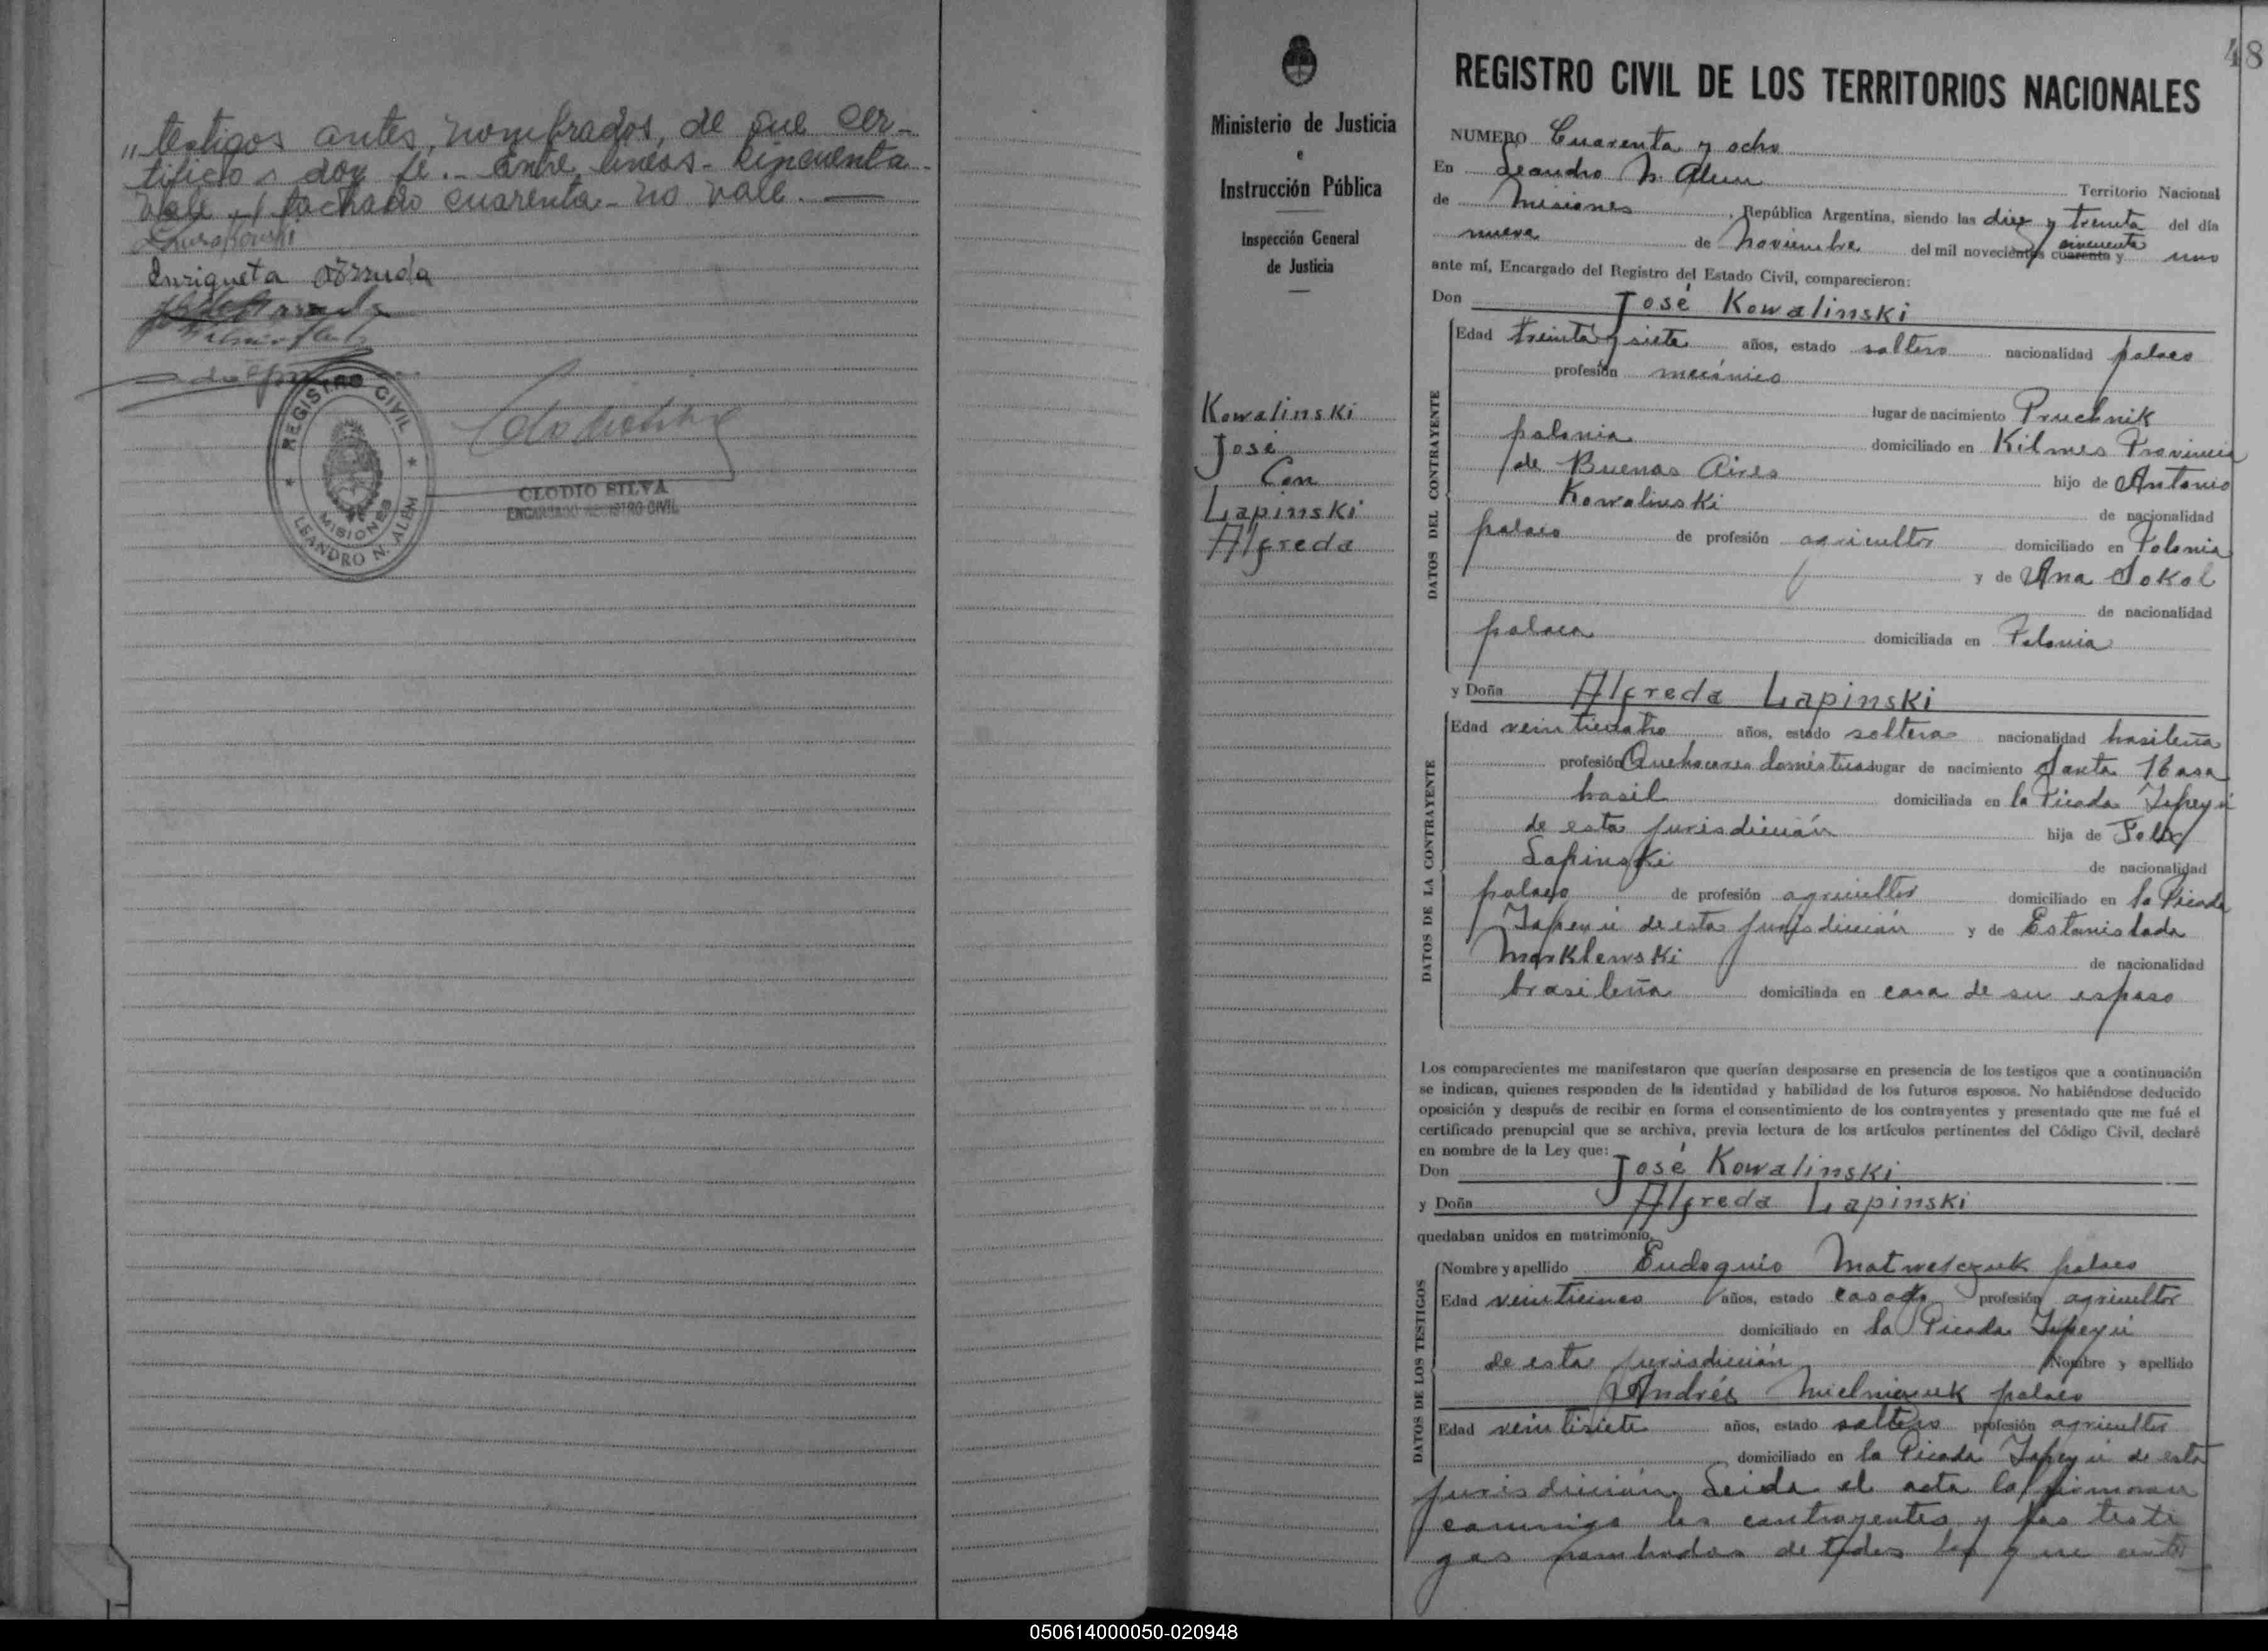 „ testigos antes nombrados, de que cer-
tifico y doy fé.- Entre líneas- cincuenta-
vale - tachado cuarenta- no vale.
Enriqueta Arruda
REGISTRO CIVIL
MISIONES
LEANDRO N. ALEM
CLODIO SILVA
ENCARGADO REGISTRO CIVIL
Ministerio de Justicia
e
Instrucción Pública
Inspección General
de Justicia
Kowalinski
José
Con
Lapinski
Alfreda
48
REGISTRO CIVIL DE LOS TERRITORIOS NACIONALES
NUMERO Cuarenta y ocho
En Leandro N. Alem Territorio Nacional
de Misiones, República Argentina, siendo las diez y treinta del día
nueve de Noviembre del mil novecientos cuarenta y cincuenta uno
ante mí, Encargado del Registro del Estado Civil, comparecieron:
Don José Kowalinski
DATOS DEL CONTRAYENTE
Edad treinta y siete años, estado soltero nacionalidad polaco
profesión mecánico
lugar de nacimiento Pruchnik
polonia domiciliado en Kilmes Provincia
de Buenos Aires hijo de Antonio
Kowalinski de nacionalidad
polaco de profesión agricultor domiciliado en Polonia
y de Ana Sokol
de nacionalidad
polaca domiciliada en Polonia
y Doña Alfreda Lapinski
DATOS DE LA CONTRAYENTE
Edad veinticuatro años, estado soltera nacionalidad brasileña
profesión Quehaceres domésticos lugar de nacimiento Santa Rosa
brasil domiciliada en la Picada Yapeyú
de esta jurisdicción hija de Felix
Lapinski de nacionalidad
polaco de profesión agricultor domiciliado en la Picada
Yapeyú de esta jurisdicción y de Estanislada
Marklewski de nacionalidad
brasileña domiciliada en casa de su esposo
Los comparecientes me manifestaron que querían desposarse en presencia de los testigos que a continuación
se indican, quienes responden de la identidad y habilidad de los futuros esposos. No habiéndose deducido
oposición y después de recibir en forma el consentimiento de los contrayentes y presentado que me fué el
certificado prenupcial que se archiva, previa lectura de los artículos pertinentes del Código Civil, declaré
en nombre de la Ley que:
Don José Kowalinski
y Doña Alfreda Lapinski
quedaban unidos en matrimonio.
DATOS DE LOS TESTIGOS
Nombre y apellido Eudoquio Matwejczuk polaco
Edad veinticinco años, estado casado profesión agricultor
domiciliado en la Picada Yapeyú
de esta jurisdicción Nombre y apellido
Andrés Mielniczuk polaco
Edad veintisiete años, estado soltero profesión agricultor
domiciliado en la Picada Yapeyú de esta
jurisdicción. Leida el acta la firmaron
conmigo los contrayentes y los testi
gos nombrados de todos los que
050614000050-020948